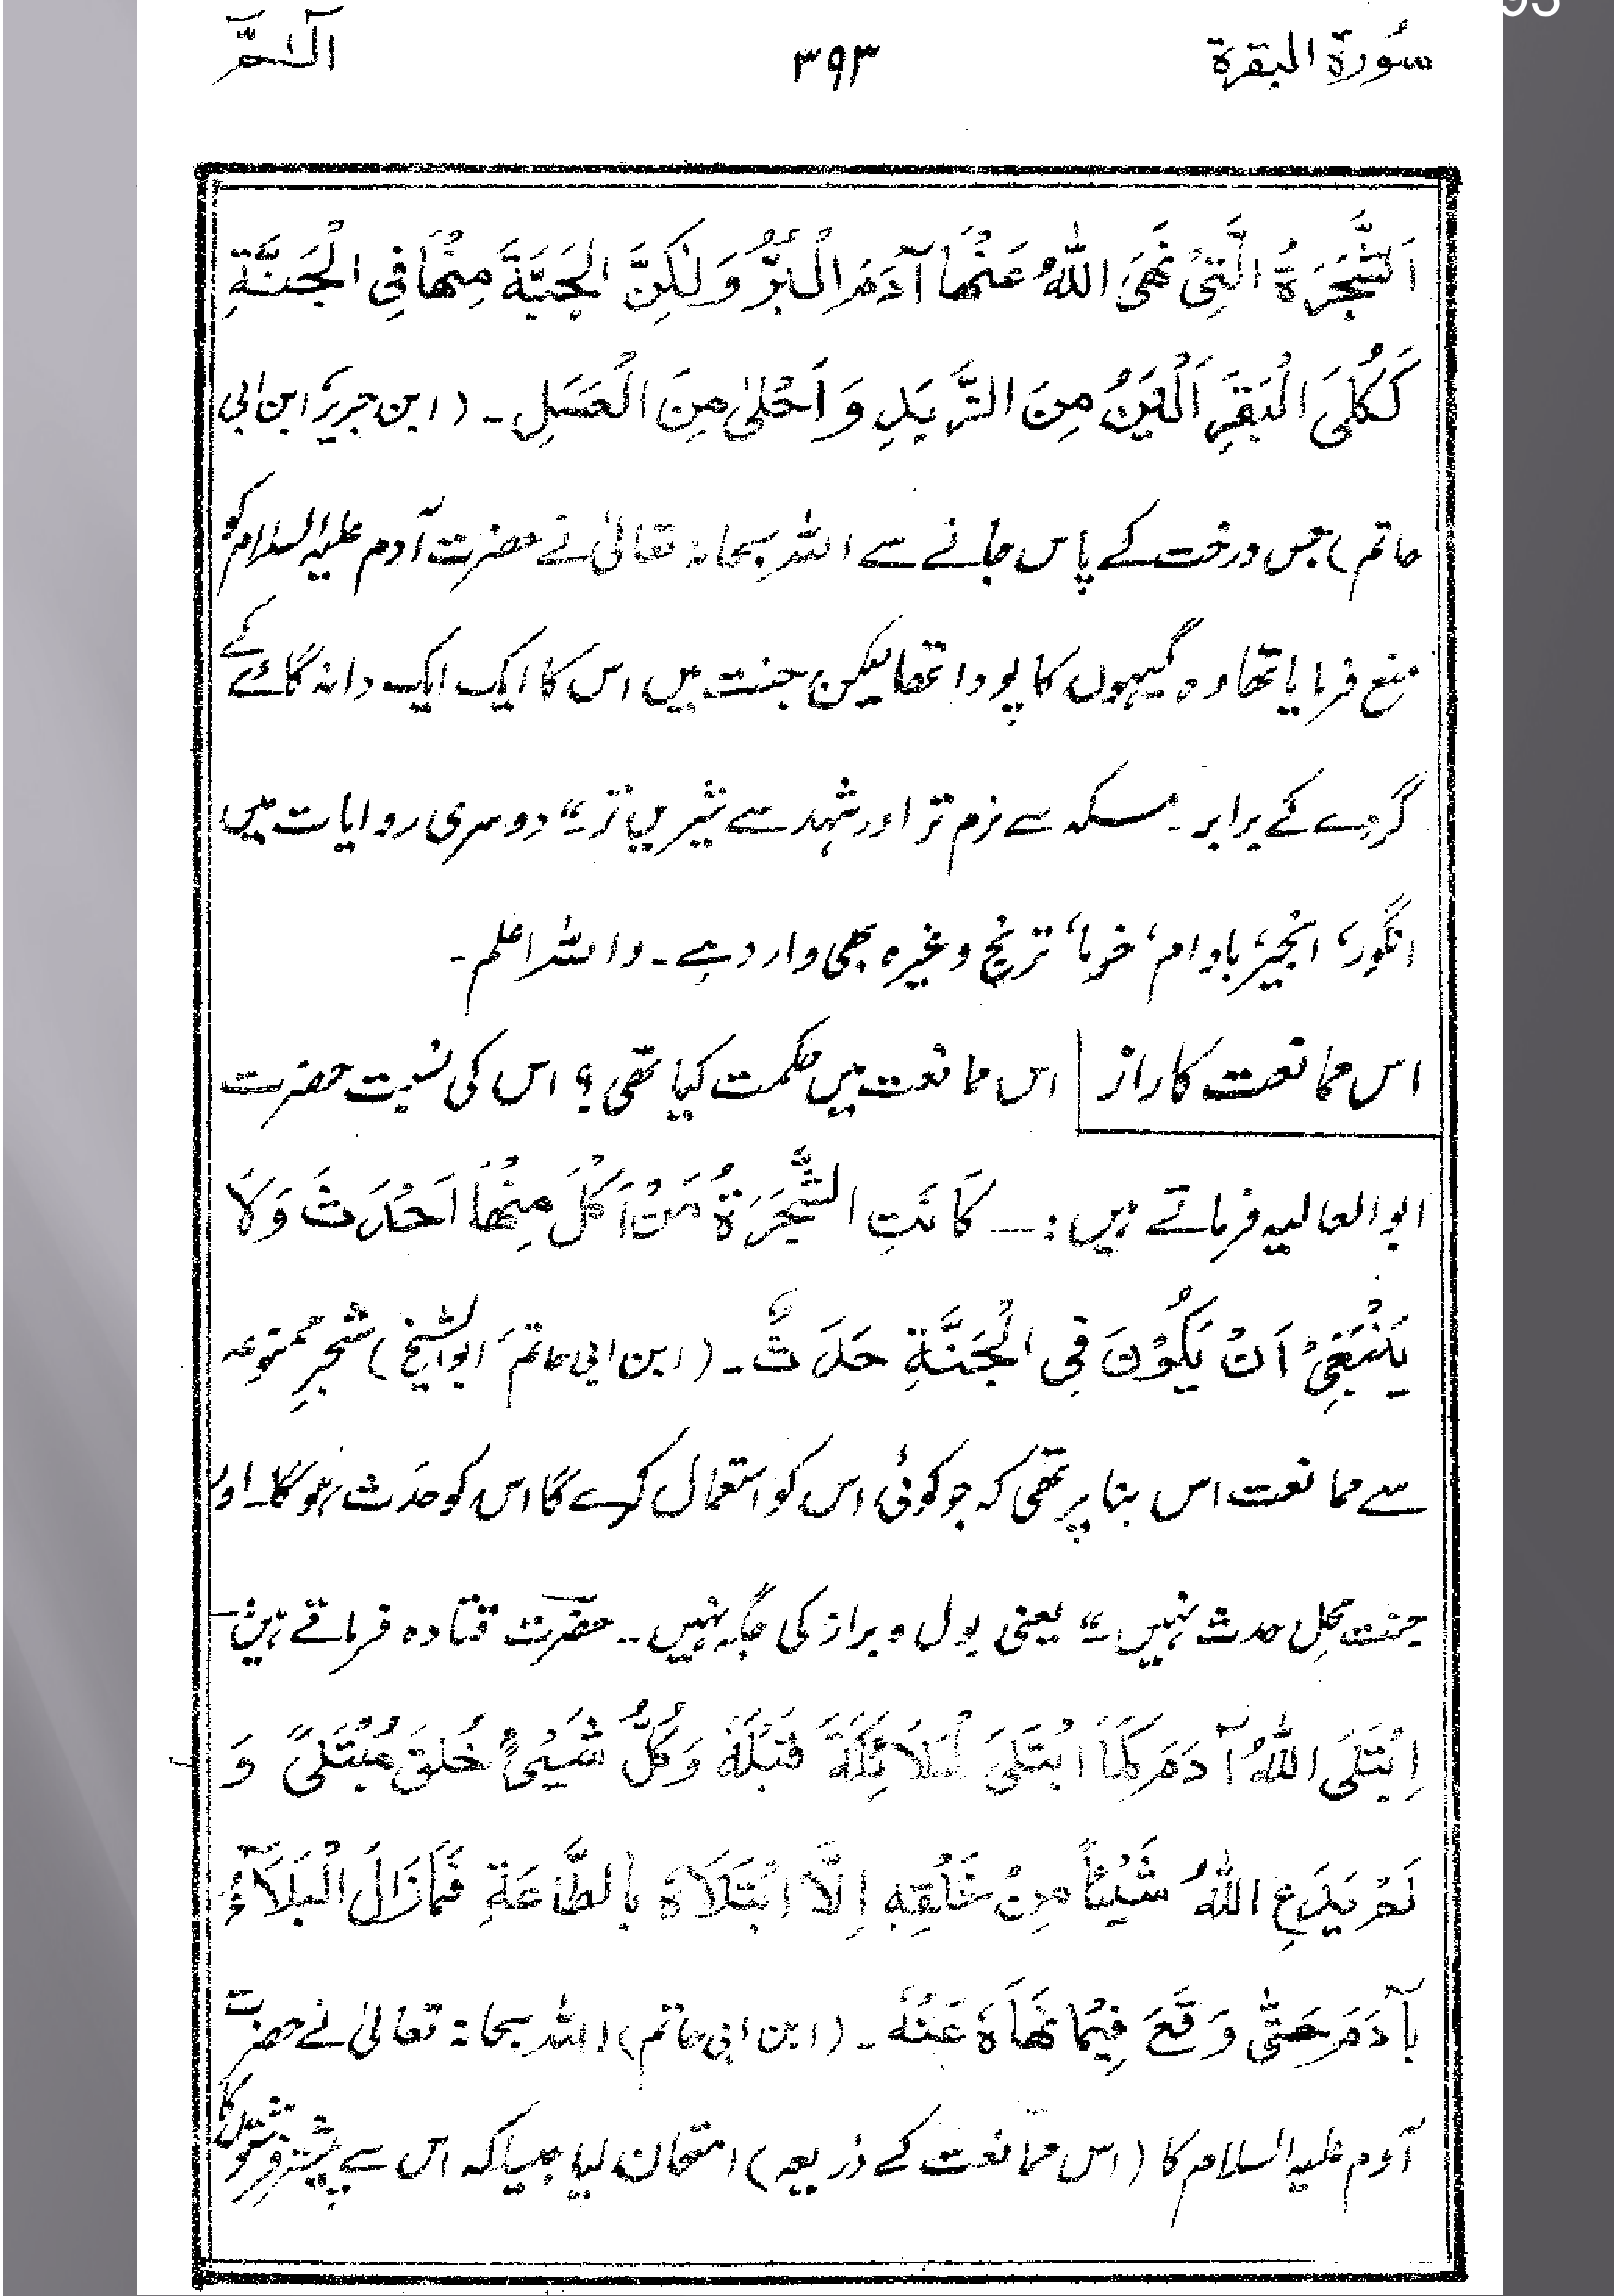 سُورة البقرة ۳۹۳ آلٓمّٓ
اَلشَّجَرَةُ الَّتِیْ نَهَی اللّٰهُ عَنْهَا آدَمَ الْبُرُّ وَلٰکِنَّ الْحَبَّةَ مِنْهَا فِی الْجَنَّةِ
کَکُلَی الْبَقَرِ اَلْیَنُ مِنَ الزَّبَدِ وَ اَحْلیٰ مِنَ الْعَسَلِ ۔ (ابن جریر، ابن ابی
حاتم) جس درخت کے پاس جانے سے اللہ سبحانہ تعالیٰ نے حضرت آدم علیہ السلام کو
منع فرمایا تھا وہ گیہوں کا پودا تھا لیکن جنت میں اس کا ایک ایک دانہ گائے کے
گردے کے برابر ۔ مسکہ سے نرم تر اور شہد سے شیریں تر۔“ دوسری روایات میں
انگور، انجیر، بادام، خرما، ترنج وغیرہ بھی وارد ہے ۔ واللہ اعلم ۔
اس ممانعت کا راز اس ممانعت میں حکمت کیا تھی؟ اس کی نسبت حضرت
ابوالعالیہ فرماتے ہیں :۔ کَانَتِ الشَّجَرَةُ مَنْ اَکَلَ مِنْهَا اَحْدَثَ وَلَا
یَنْبَغِیْ اَنْ یَکُوْنَ فِی الْجَنَّةِ حَدَثٌ ۔ (ابن ابی حاتم، ابوالشیخ) شجرِ ممنوعہ
سے ممانعت اس بنا پر تھی کہ جو کوئی اس کو استعمال کرے گا اس کو حدَث ہوگا۔ اور
جنت محلِ حدث نہیں۔“ یعنی بول و براز کی جگہ نہیں ۔ حضرت قتادہ فرماتے ہیں :۔
اِبْتَلَی اللّٰهُ آدَمَ کَمَا ابْتَلَی الْمَلَائِکَةَ قَبْلَهٗ وَکُلُّ شَیْئٍ خُلِقَ مُبْتَلیً وَ
لَمْ یَدَعِ اللّٰهُ شَیْئاً مِنْ خَلْقِهٖ اِلَّا ابْتَلَاهُ بِالطَّاعَةِ فَمَازَالَ الْبَلَآءُ
بِآدَمَ حَتّٰی وَقَعَ فِیْمَا نَهَاهُ عَنْهُ ۔ (ابن ابی حاتم) اللہ سبحانہ تعالیٰ نے حضرت
آدم علیہ السلام کا (اس ممانعت کے ذریعہ) امتحان لیا جیسا کہ اس سے پیشتر فرشتوں کا